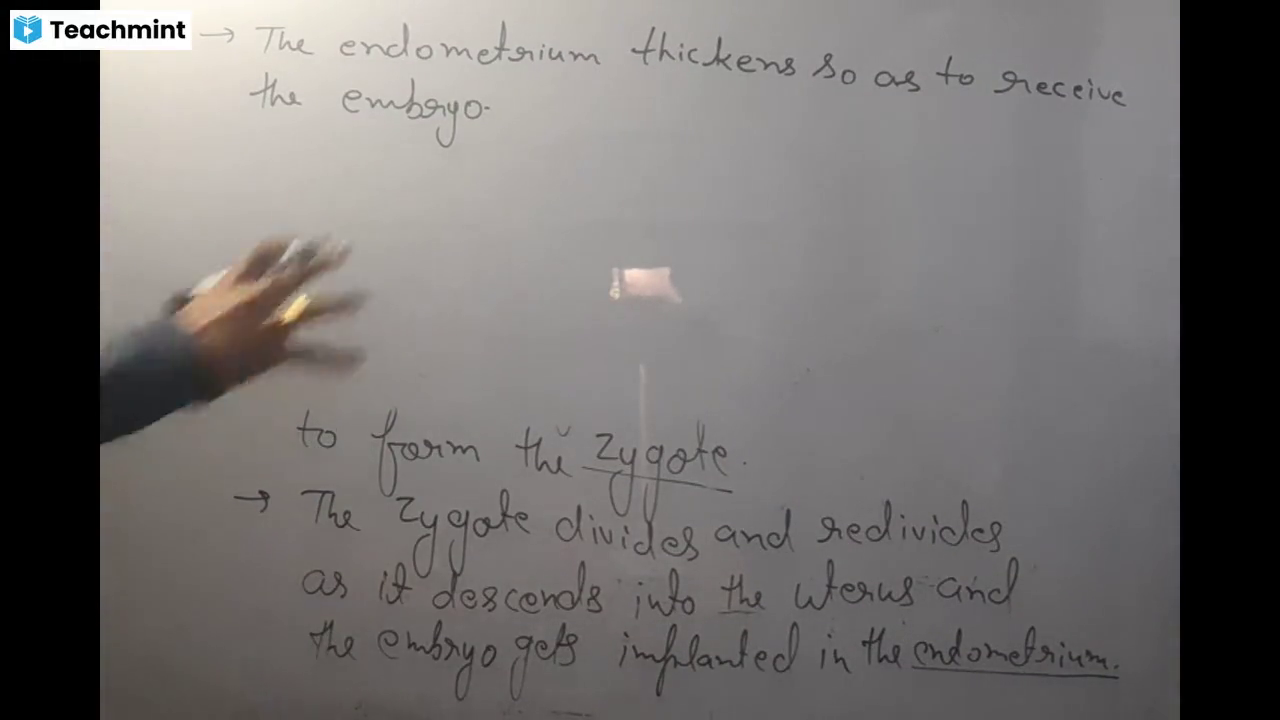 Teachmint
→ The endometrium thickens so as to receive
the embryo.
to form the zygote.
→ The zygote divides and redivides
as it descends into the uterus and
the embryo gets implanted in the endometrium.